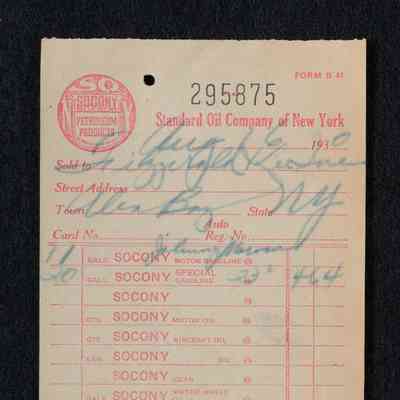 FORM B 41
SO
SOCONY
PETROLEUM
PRODUCTS
NY
295875
Standard Oil Company of New York
Aug 6 1930
Sold to Fitzgerald
Street Address
Town Alex Bay State NY
Auto
Card No. Reg. No.
11 GALS. SOCONY MOTOR GASOLINE @
20 GALS. SOCONY SPECIAL GASOLINE 23² 464
SOCONY @
QTS. SOCONY MOTOR OIL @
QTS. SOCONY AIRCRAFT OIL @
LBS. SOCONY @
SOCONY GEAR @
GALS. SOCONY